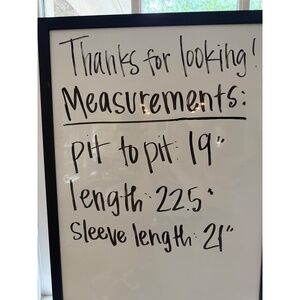 Thanks for looking!
Measurements:
pit to pit: 19"
length: 22.5"
sleeve length: 21"